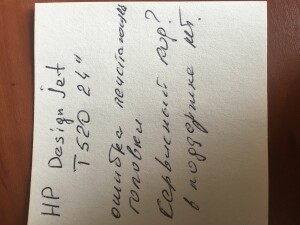 HP Design Jet
T520 24"
ошибка печатающей
головки
Сервисный кор?
в поддержке нт.